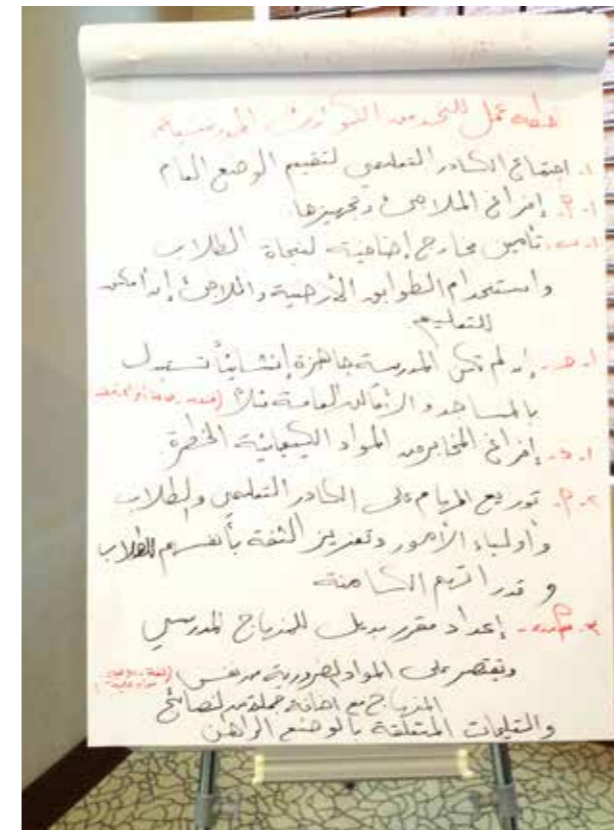 خطة عمل للحد من الكوارث المدرسية
١. اجتماع الكادر التعليمي لتقييم الوضع العام
١. ٢. إفراغ الملاجئ وتجهيزها.
١. ب. تأمين مخارج إضافية لنجاة الطلاب
واستخدام الطوابق الأرضية والملاجئ إن أمكن
للتعليم.
١. جـ. إن لم تكن المدرسة جاهزة إنشائياً تستبدل
بالمساجد و العامة مثلاً
١. د. إفراغ المخابر من المواد الكيميائية الخطرة
٢. ٢. توزيع المهام على الكادر التعليمي والطلاب
وأولياء الأمور وتعزيز الثقة بأنفسهم للطلاب
و قدراتهم الكامنة
٣. إعداد مقرر بديل للمنهاج المدرسي
ويقتصر على المواد الضرورية من نفس
المنهاج مع إضافة جملة من النصائح
والتعليمات المتعلقة بالوضع الراهن